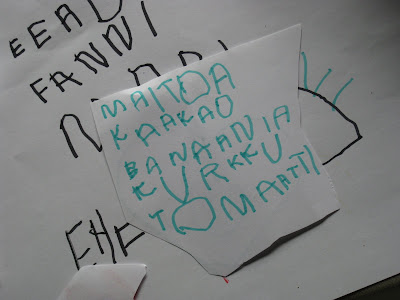 FANNI
MAITOA
KAAKAO
BANAANIA
KURKKU
TOMAATTI